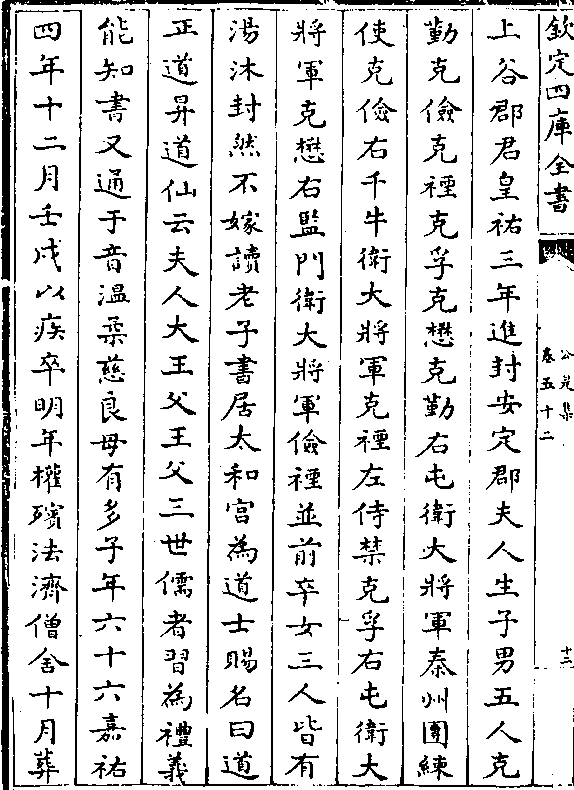 欽定四庫全書
公是集
卷五十二
十三
上谷郡君皇祐三年進封安定郡夫人生子男五人克
勤克儉克禋克孚克懋克勤右屯衛大將軍秦州團練
使克儉右千牛衛大將軍克禋左侍禁克孚右屯衛大
將軍克懋右監門衛大將軍儉禋並前卒女三人皆有
湯沐封然不嫁讀老子書居太和宫為道士賜名曰道
正道昇道仙云夫人大王父王父三世儒者習為禮義
能知書又通于音溫柔慈良母有多子年六十六嘉祐
四年十二月壬戌以疾卒明年權殯法濟僧舍十月葬